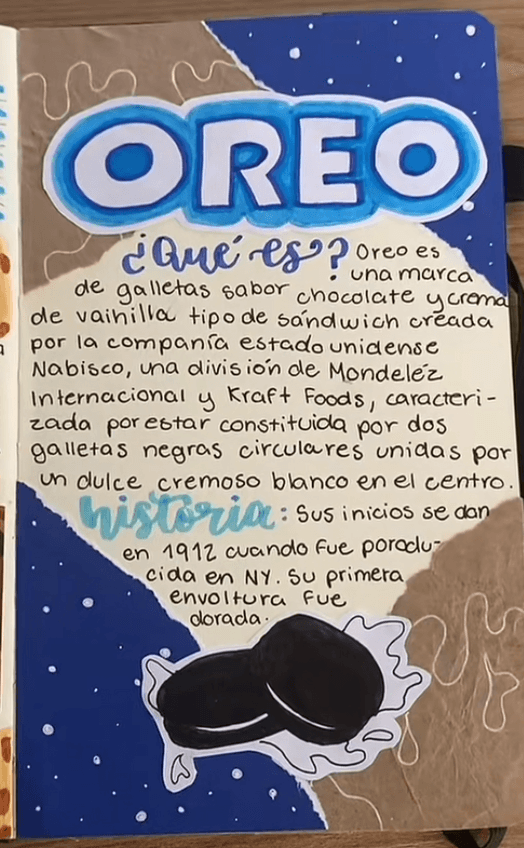 OREO
¿Qué es? Oreo es
una marca
de galletas sabor chocolate y crema
de vainilla tipo de sándwich creada
por la companía estadounidense
Nabisco, una división de Mondeléz
Internacional y Kraft Foods, caracteri-
zada por estar constituida por dos
galletas negras circulares unidas por
un dulce cremoso blanco en el centro.
historia: Sus inicios se dan
en 1912 cuando fue porodu-
cida en NY. Su primera
envoltura fue
dorada.